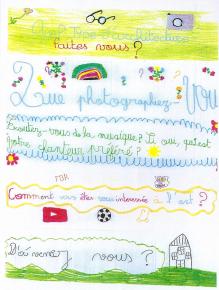 Quel Type d'architecture
faites vous ?
Que photographiez-Vous
Écoutez-vous de la musique ? Si oui, quel est
votre chanteur préféré ?
Comment vous êtes vous interessés à l'art ?
D'où venez vous ?